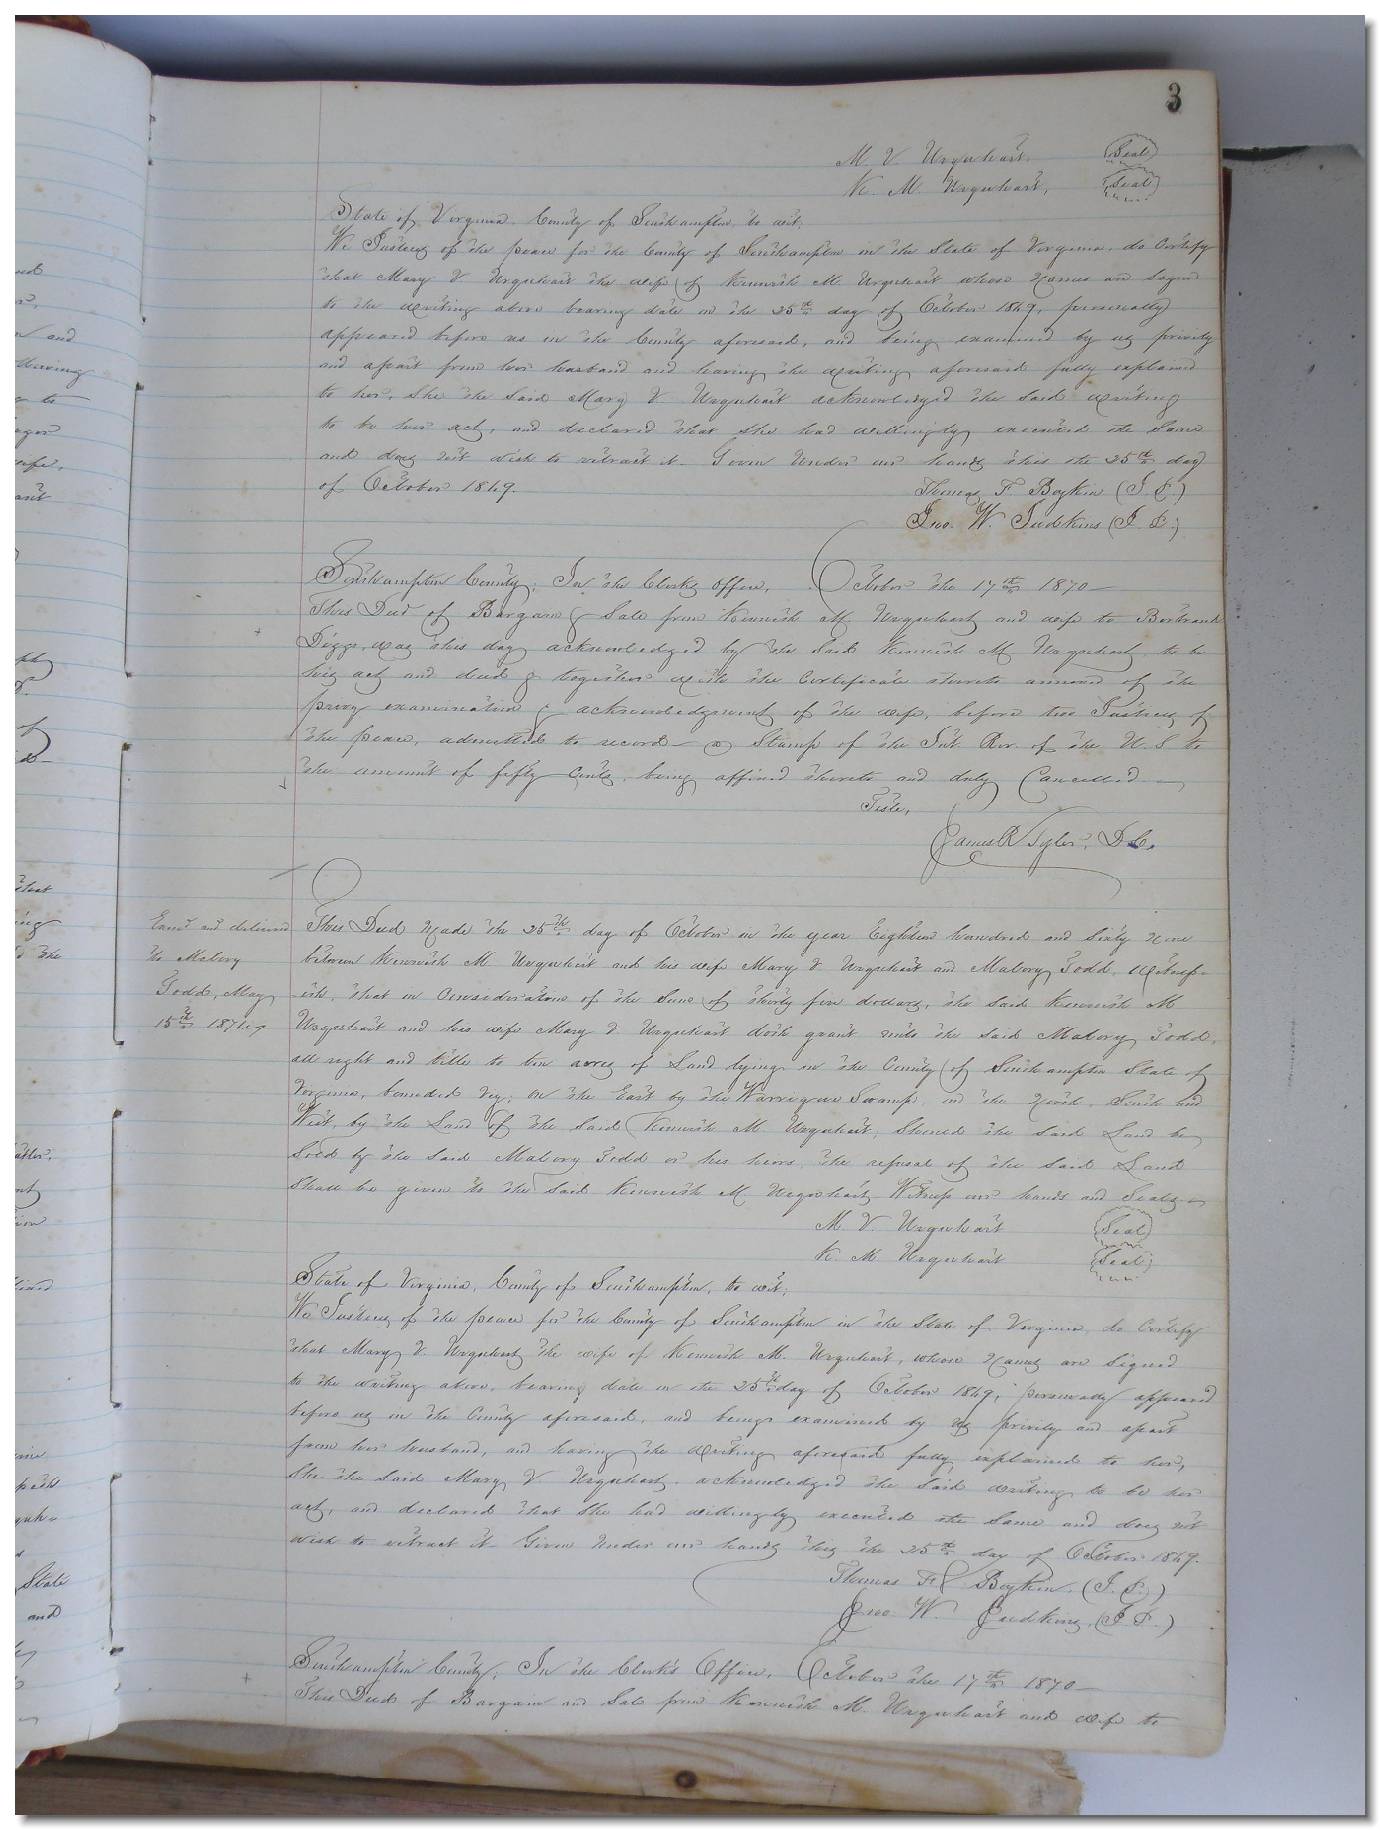 3
M. V. Urquhart. Seal
K. M. Urquhart, Seal
State of Virginia County of Southampton, to wit;
We Justices of the peace for the County of Southampton in the State of Virginia, do Certify
that Mary V Urquhart the wife of Kenneth M. Urquhart whose Names are Signed
to the writing above bearing date on the 25th day of October 1869, personally
appeared before us in the County aforesaid, and being examined by us privily
and apart from her husband and having the writing aforesaid fully explained
to her, She the Said Mary V Urquhart acknowledged the Said writing
to be her act, and declared that She had willingly executed the Same
and does not wish to retract it. Given Under our hands this the 25th day
of October 1869.
Thomas F Boykin (J. P.)
Jno. W. Judkins (J. P.)
Southampton County; In the Clerks Office, October the 17th 1870—
This Deed of Bargain & Sale from Kenneth M Urquhart and wife to
Diggs, was this day acknowledged by the Said Kenneth M Urquhart, to be
his act and deed & together with the Certificate thereto annexed of the
privy examination & acknowledgment of the wife, before two Justices of
the peace, admitted to record— a Stamp of the Int. Rev. of the U. S to
the amount of fifty Cents, being affixed thereto and duly Cancelled—
Teste,
James R Tyler, D C.
Exmd and delivered
to Malory
Todd, May
15th 1871
This Deed Made the 25th day of October in the year Eighteen hundred and Sixty Nine
between Kenneth M Urquhart and his wife Mary V Urquhart and Malory Todd, Witness-
eth, that in Consideration of the Sum of thirty five dollars, the Said Kenneth M
Urquhart and his wife Mary V Urquhart doth grant unto the Said Malory Todd,
all right and title to ten acres of Land lying in the County of Southampton State of
Virginia, bounded viz; on the East by the Swamp, on the North, South and
West, by the Land of the Said Kenneth M Urquhart, Should the Said Land be
Sold by the Said Malory Todd or his heirs, the refusal of the Said Land
Shall be given to the Said Kenneth M Urquhart, Witness our hands and Seals—
M. V. Urquhart Seal
K. M Urquhart Seal
State of Virginia, County of Southampton, to wit;
We Justices of the peace for the County of Southampton in the State of Virginia, do Certify
that Mary V. Urquhart the wife of Kenneth M. Urquhart, whose Names are Signed
to the writing above, bearing date on the 25th day of October 1869, personally appeared
before us in the County aforesaid, and being examined by us privily and apart
from her husband, and having the writing aforesaid fully explained to her,
She the Said Mary V Urquhart, acknowledged the Said writing to be her
act, and declared that She had willingly executed the Same and does not
wish to retract it. Given Under our hands this the 25th day of October 1869.
Thomas F. Boykin, (J. P.)
Jno W. Judkins, (J. P.)
Southampton County; In the Clerk's Office, October the 17th 1870—
This Deed of Bargain and Sale from Kenneth M. Urquhart and wife to